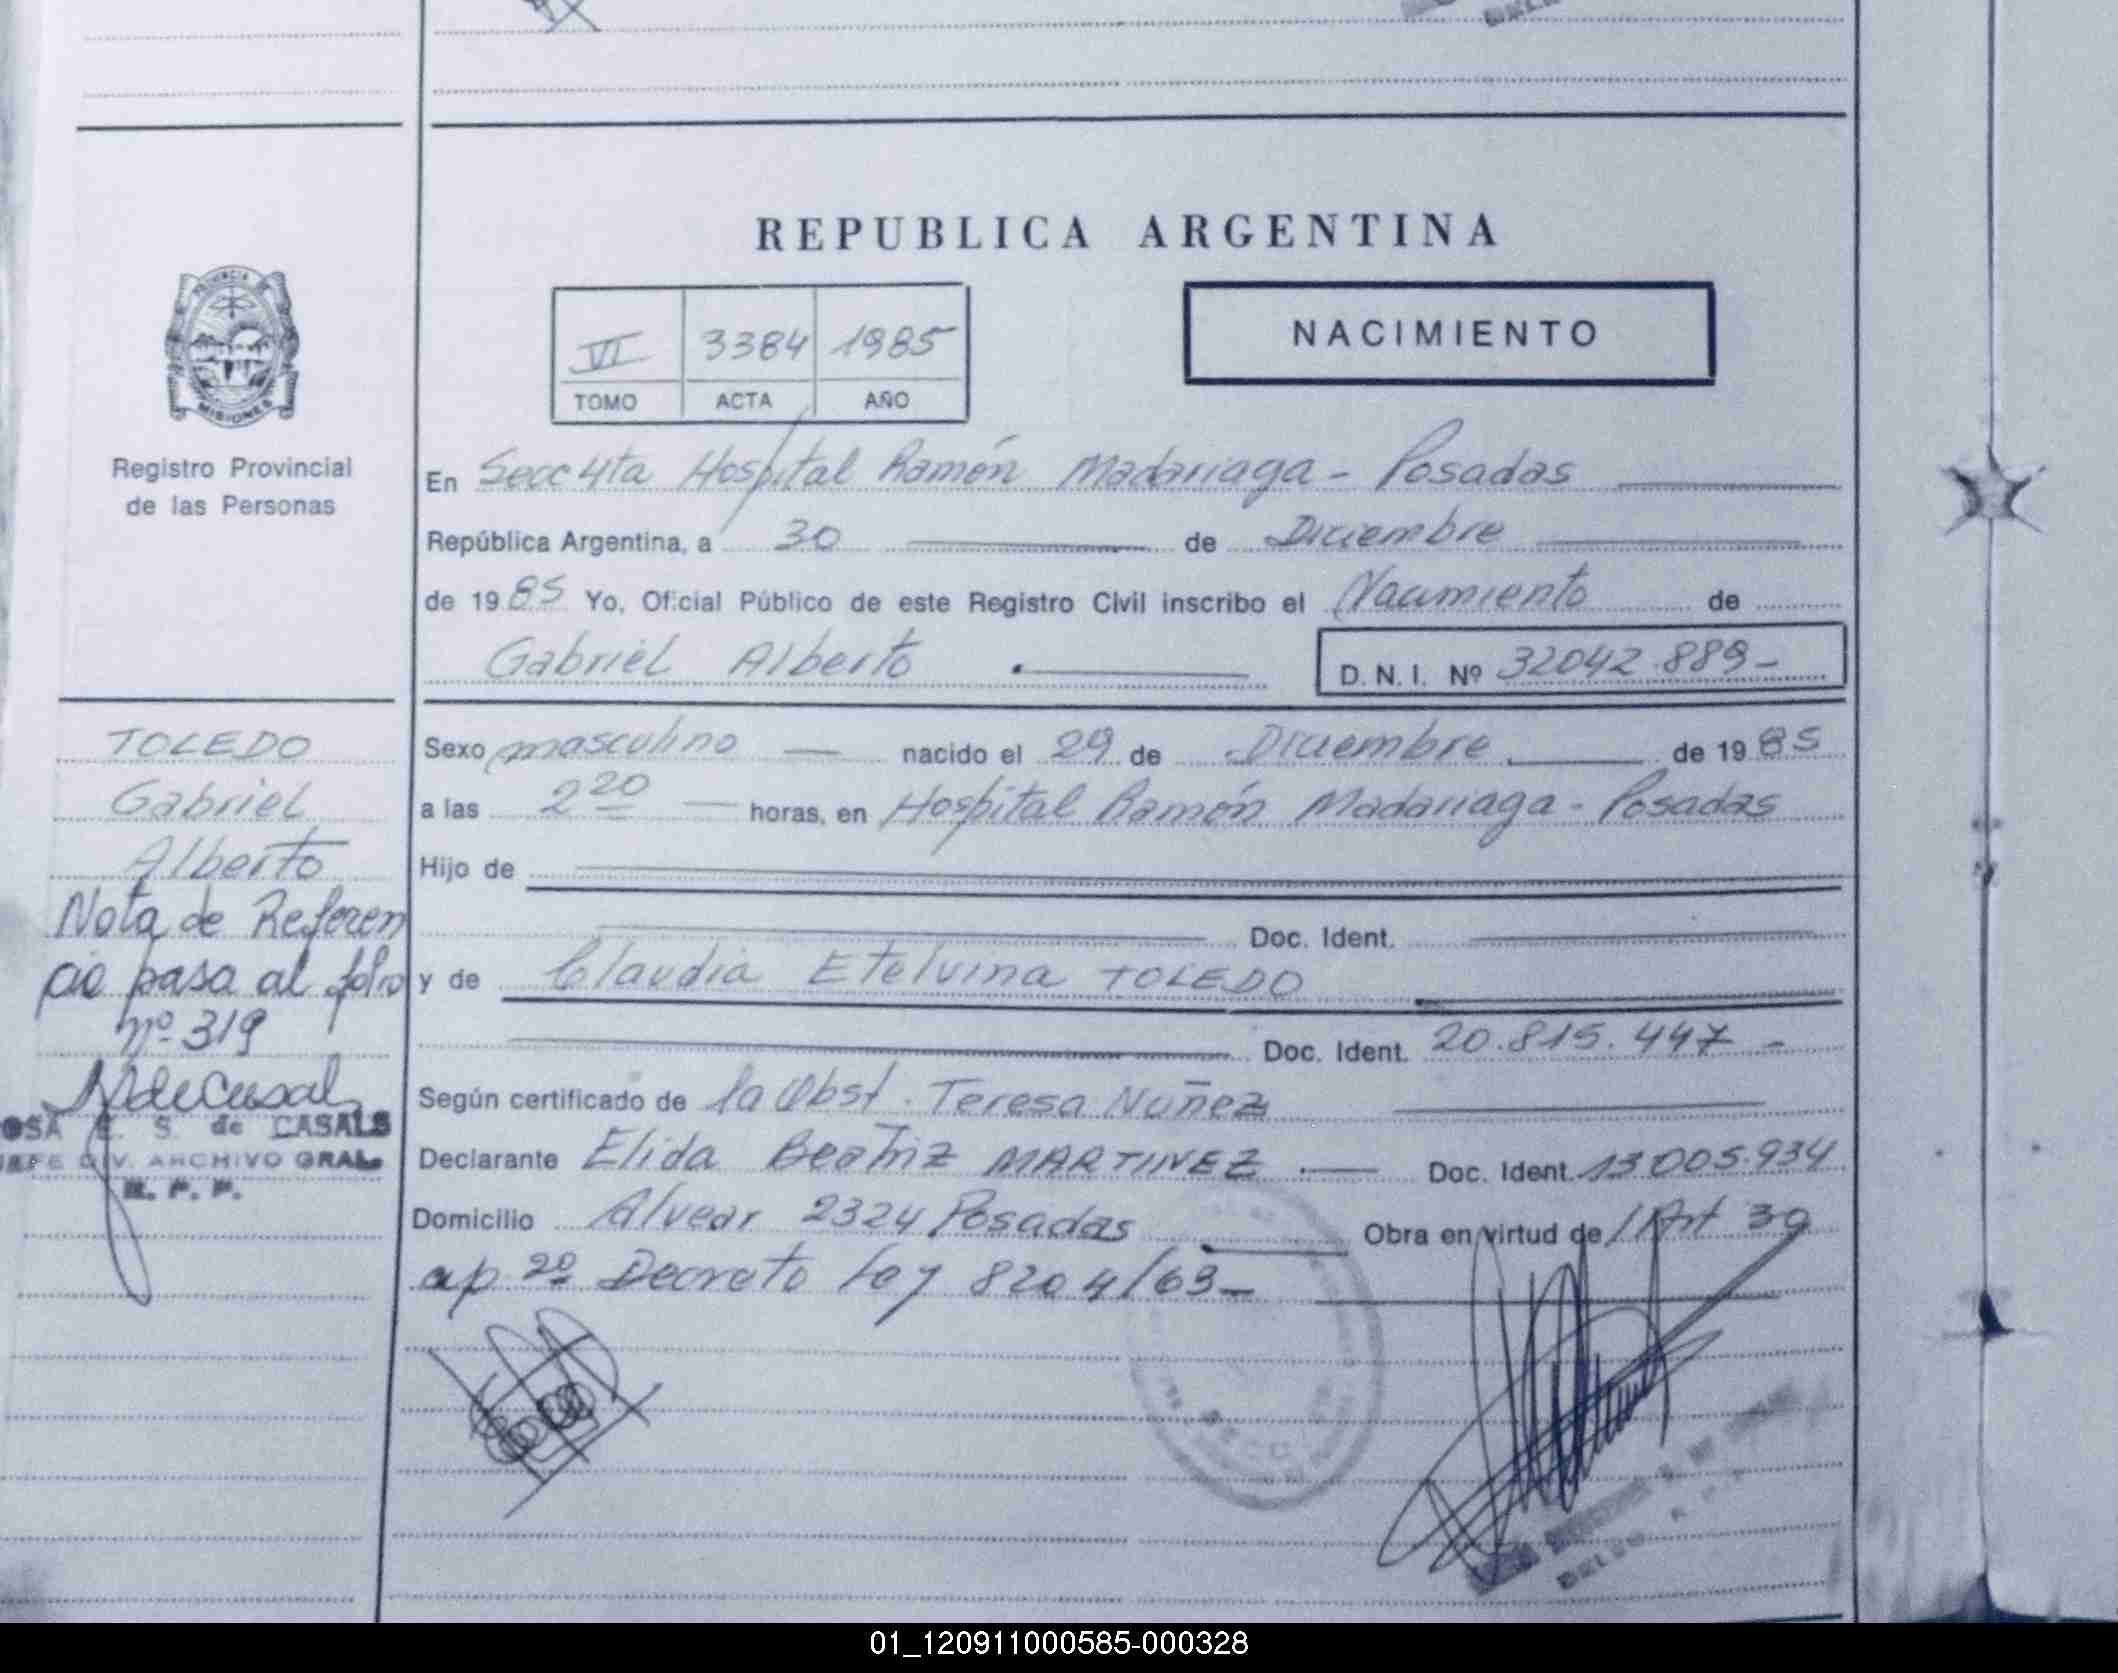 REPUBLICA ARGENTINA
VI 3384 1985
TOMO ACTA AÑO
NACIMIENTO
PROVINCIA DE
MISIONES
Registro Provincial
de las Personas
En Secc 4ta Hospital Ramón Madariaga - Posadas
República Argentina, a 30 de Diciembre
de 1985 Yo, Oficial Público de este Registro Civil inscribo el Nacimiento de
Gabriel Alberto
D. N. I. Nº 32042.889-
TOLEDO
Gabriel
Alberto
Nota de Referen
cia pasa al folio
nº 319
OSA E. S. de CASALS
JEFE DIV. ARCHIVO GRAL.
R. P. P.
Sexo masculino — nacido el 29 de Diciembre de 1985
a las 2 20 — horas, en Hospital Ramón Madariaga - Posadas
Hijo de
Doc. Ident.
y de Claudia Etelvina TOLEDO
Doc. Ident. 20.815.447 -
Según certificado de la Obst. Teresa Núñez
Declarante Elida Beatriz MARTINEZ — Doc. Ident. 13.005.934
Domicilio Alvear 2324 Posadas Obra en virtud de / Art 39
ap 2º Decreto Ley 8204/63-
SECC
01_120911000585-000328